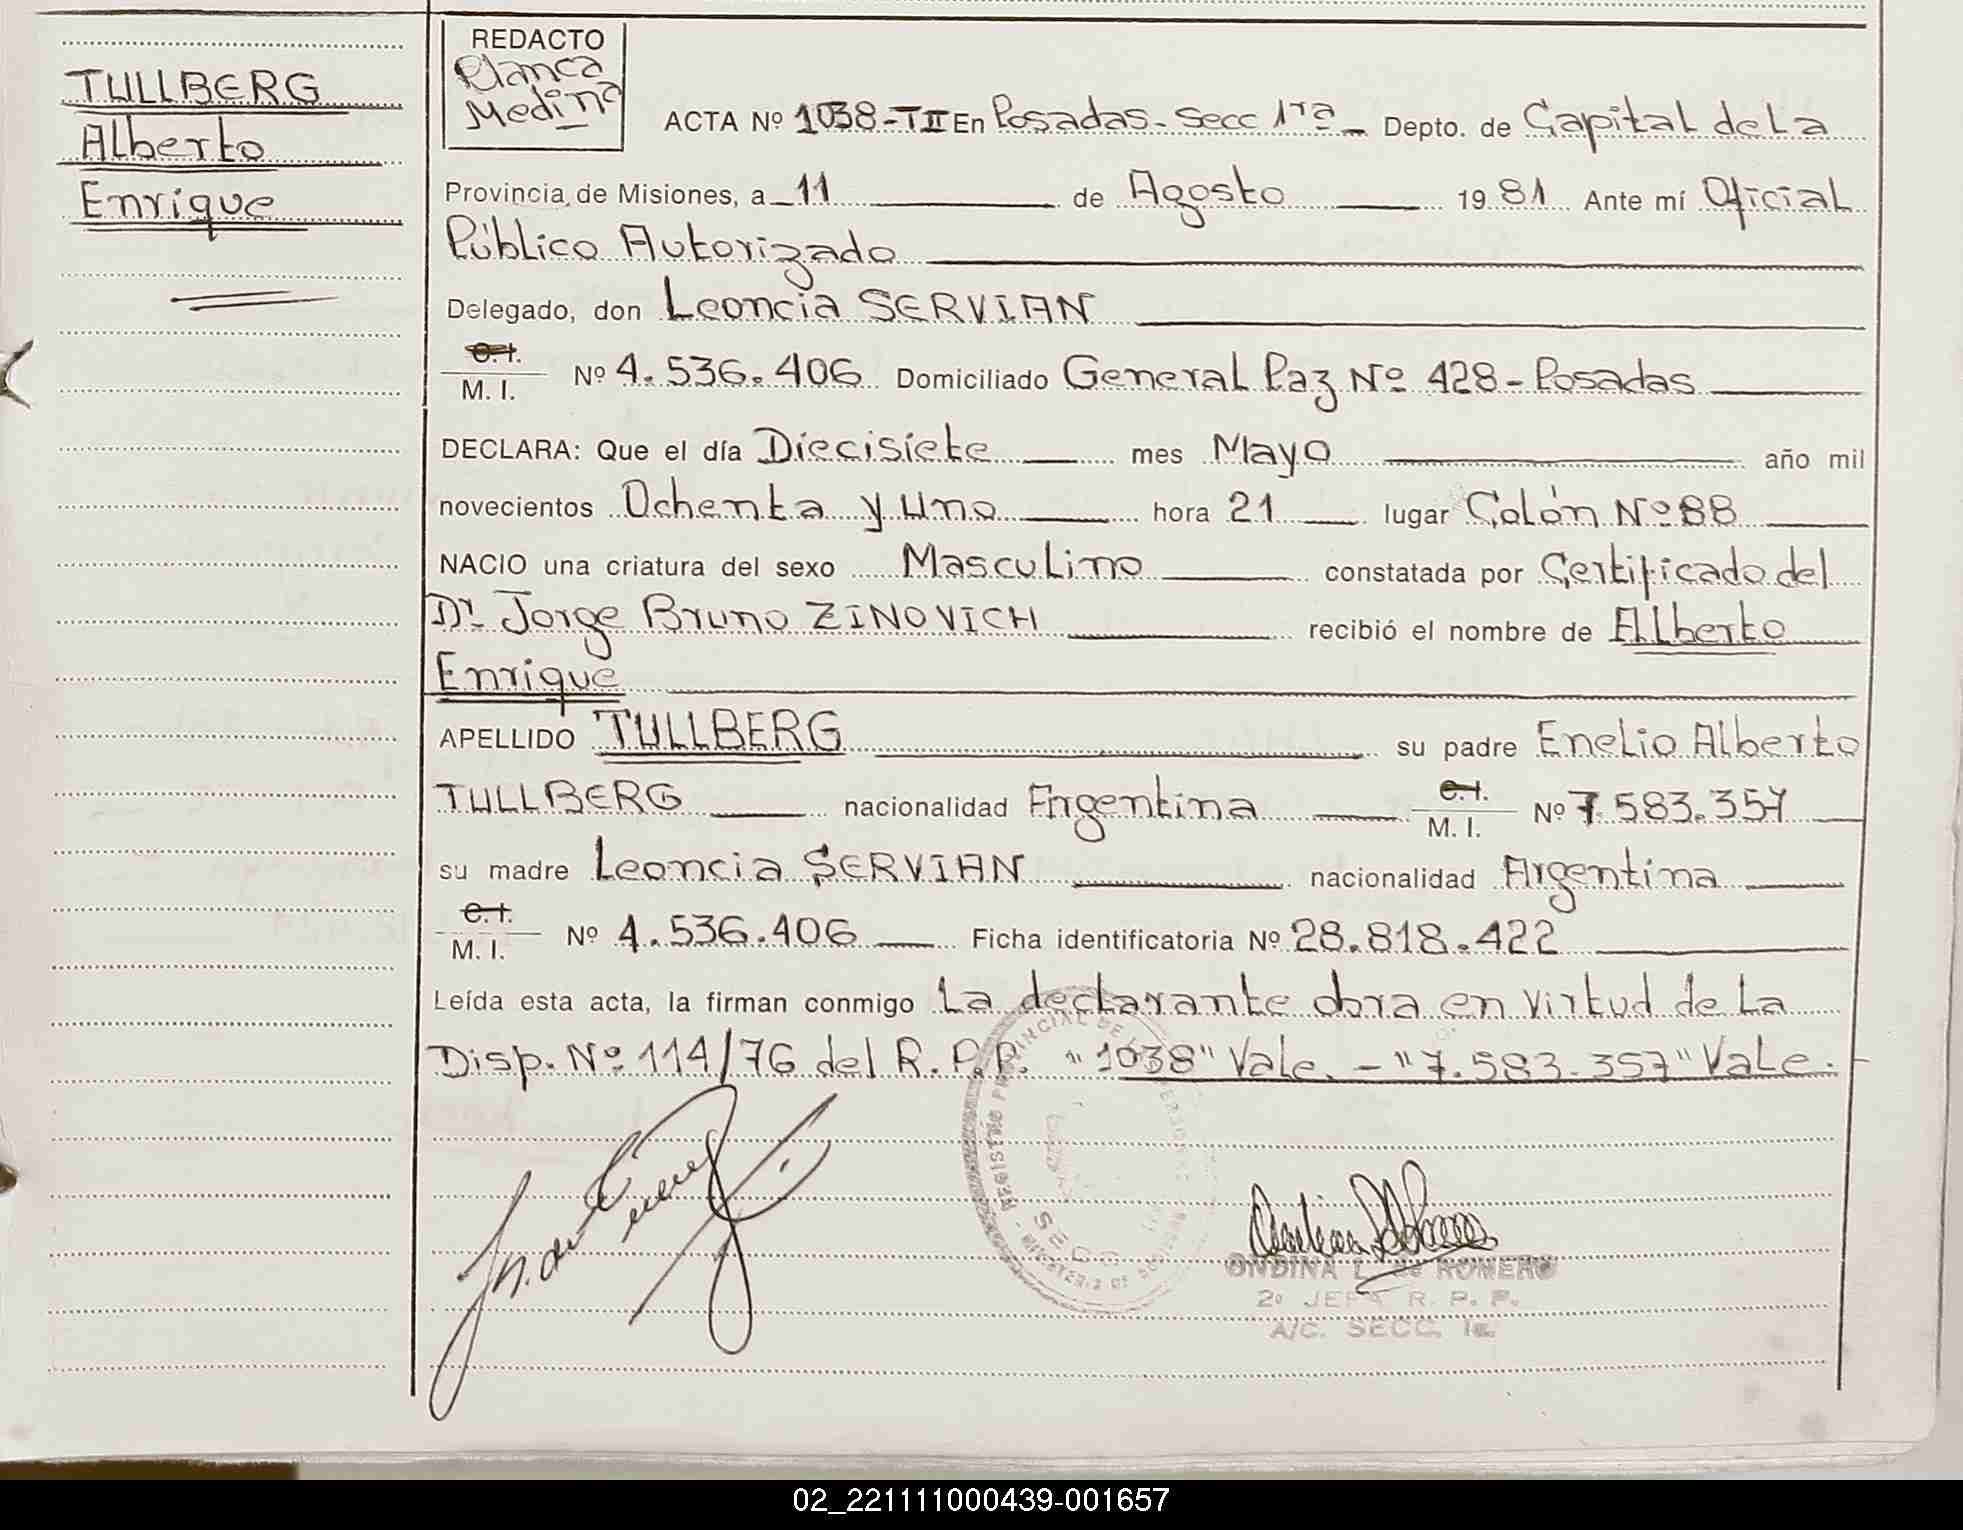 TULLBERG
Alberto
Enrique
REDACTO
Blanca
Medina
ACTA Nº 1038-TII En Posadas - Secc 1ra - Depto. de Capital de La
Provincia de Misiones, a 11 de Agosto 1981 Ante mí Oficial
Público Autorizado
Delegado, don Leoncia SERVIAN
C.I.
M. I. Nº 4.536.406 Domiciliado General Paz Nº 428 - Posadas
DECLARA: Que el día Diecisiete mes Mayo año mil
novecientos Ochenta y uno hora 21 lugar Colón Nº 88
NACIO una criatura del sexo Masculino constatada por Certificado del
Dr. Jorge Bruno ZINOVICH recibió el nombre de Alberto
Enrique
APELLIDO TULLBERG su padre Enelio Alberto
TULLBERG nacionalidad Argentina C.I. M. I. Nº 7.583.357
su madre Leoncia SERVIAN nacionalidad Argentina
C.I.
M. I. Nº 4.536.406 Ficha identificatoria Nº 28.818.422
Leída esta acta, la firman conmigo La declarante obra en virtud de La
Disp. Nº 114/76 del R.P.P. "1038" Vale. - "7.583.357" Vale.
REGISTRO PROVINCIAL DE
SECC
ONDINA L. de ROMERO
2º JEFA R. P. P.
A/C. SECC. 1a.
02_221111000439-001657